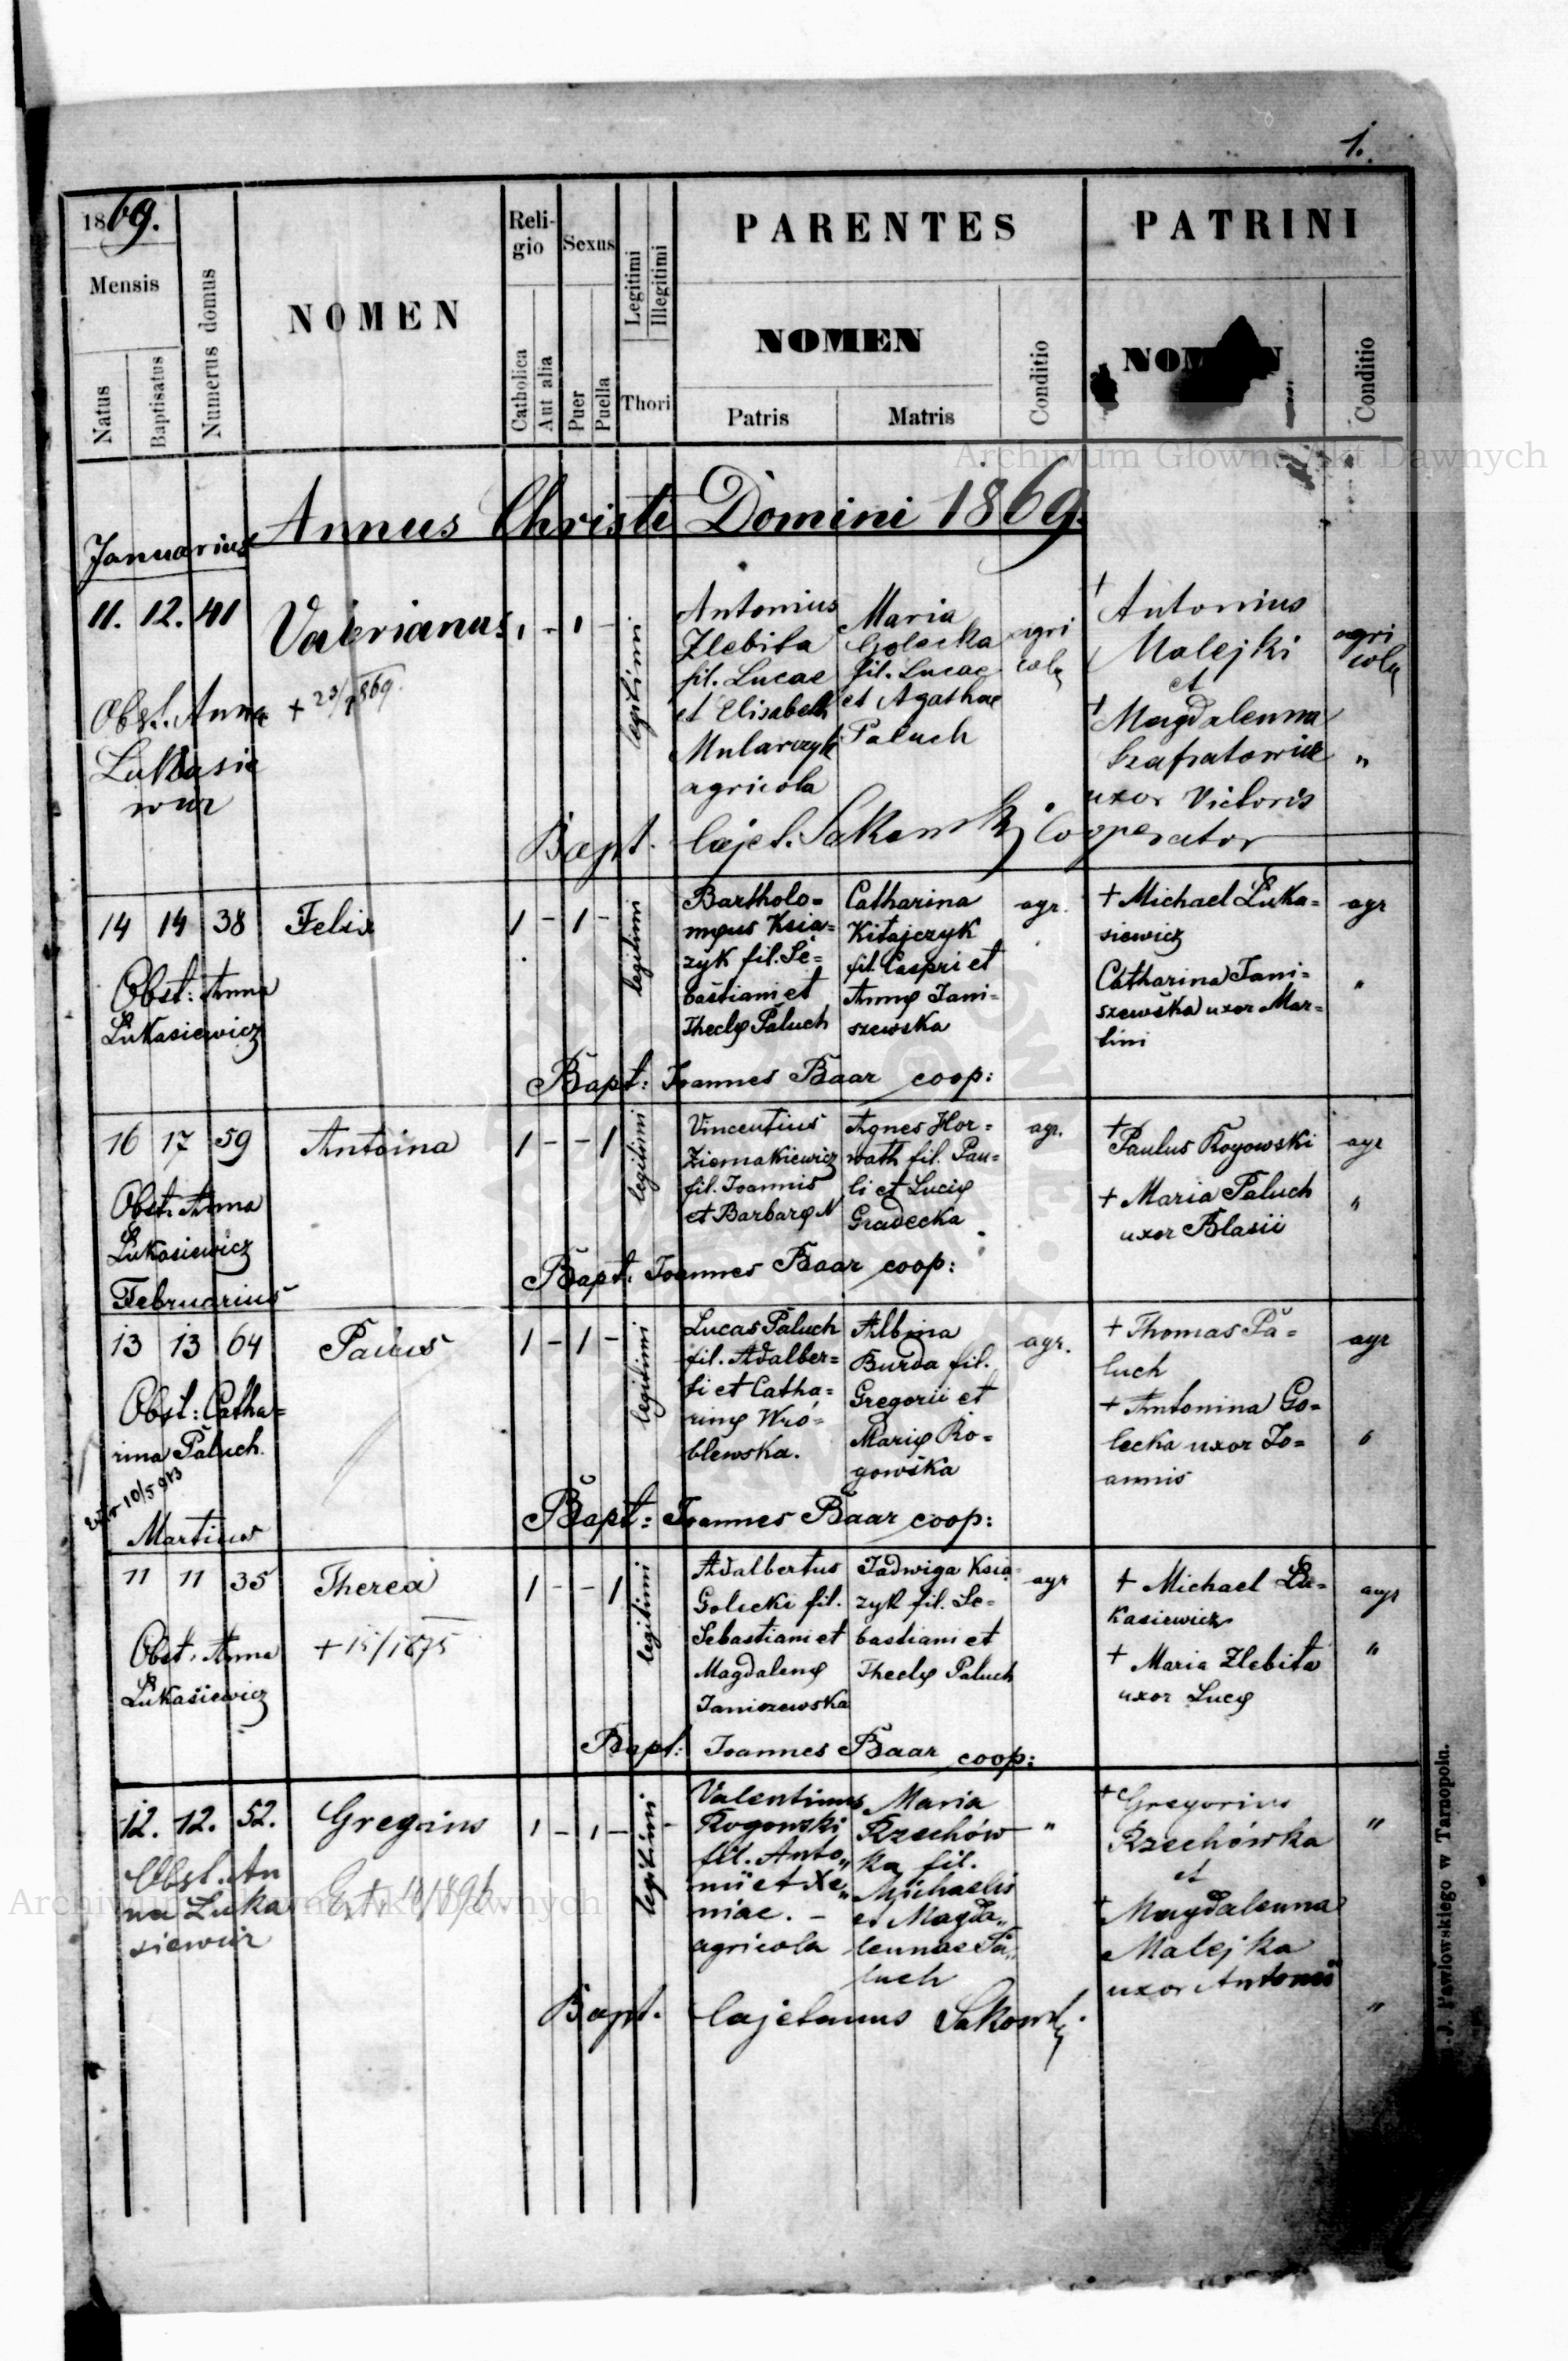 1.
1869.
Mensis
Natus
Baptisatus
Numerus domus
NOMEN
Religio
Catholica
Aut alia
Sexus
Puer
Puella
Legitimi
Illegitimi
Thori
PARENTES
NOMEN
Patris
Matris
Conditio
PATRINI
NOMEN
Conditio
Archiwum Główne Akt Dawnych
Annus Christi Domini 1869.
Januarius
11. 12. 41
Obst. Anna
Lukasie
wicz
Valerianus
+ 23/ 1869.
1 - 1 -
legitimi
Antonius
Zlebita
fil. Lucae
et Elisabeth
Mularczyk
agricola
Maria
Golecka
fil. Lucae
et Agathae
Paluch
agri
cola
† Antonius
Malejki
et
† Magdalenna
uxor Victoris
agri
colą
"
Bapt. Cajet. Sakowski Cooperator
14 14 38
Obst: Anna
Łukasiewicz
Felix
1 - 1 -
legitimi
Bartholo=
męus Ksią=
zyk fil. Se=
bastiani et
Theclę Paluch
Catharina
Kitajczyk
fil. Caspri et
Annę Jani=
szewska
agr.
+ Michael Łuka=
siewicz
Catharina Jani=
szewska uxor Mar=
tini
agr
"
Bapt: Joannes Baar coop:
16 17 59
Obst. Anna
Łukasiewicz
Antoina
1 - - 1
legitimi
Vincentius
Ziemakiewicz
fil. Joannis
et Barbarę N
Agnes Hor=
wath fil. Pau=
li et Lucię
Gradecka
agr.
+ Paulus Rogowski
+ Maria Paluch
uxor Blasii
agr
"
Bapt: Joannes Baar coop:
Februarius
13 13 64
Obst: Catha=
rina Paluch.
10/5 913
1 - 1 -
legitimi
Lucas Paluch
fil. Adalber=
ti et Catha=
rinę Wró=
blewska.
Albina
Burda fil.
Gregorii et
Marię Ro=
gowska
agr.
+ Thomas Pa=
luch
+ Antonina Go=
lecka uxor Jo=
annis
agr
"
Bapt: Joannes Baar coop:
Martius
11 11 35
Obst. Anna
Łukasiewicz
+ 15/1875
1 - - 1
legitimi
Adalbertus
Golecki fil.
Sebastiani et
Magdalenę
Janiszewska
Jadwiga Ksią=
zyk fil. Se=
bastiani et
Theclę Paluch
agr
+ Michael Łu=
kasiewicz
+ Maria Zlebita
uxor Lucę
agr
"
Bapt: Joannes Baar coop:
12. 12. 52.
Obst. An
na Luka
siewicz
1 - 1 -
legitimi
Valentinus
Rogowski
fil. Anto„
nii et Xe„
niae. -
agricola
Maria
Rzechów
ka fil.
Michaelis
et Magda„
lennae Pa„
luch
"
+ Gregorius
Rzechówka
et
+ Magdalenna
Malejka
uxor Antonii
"
"
Bapt. Cajetanus Sakowski
Archiwum Główne Akt Dawnych
J. Pawłowskiego w Tarnopolu.